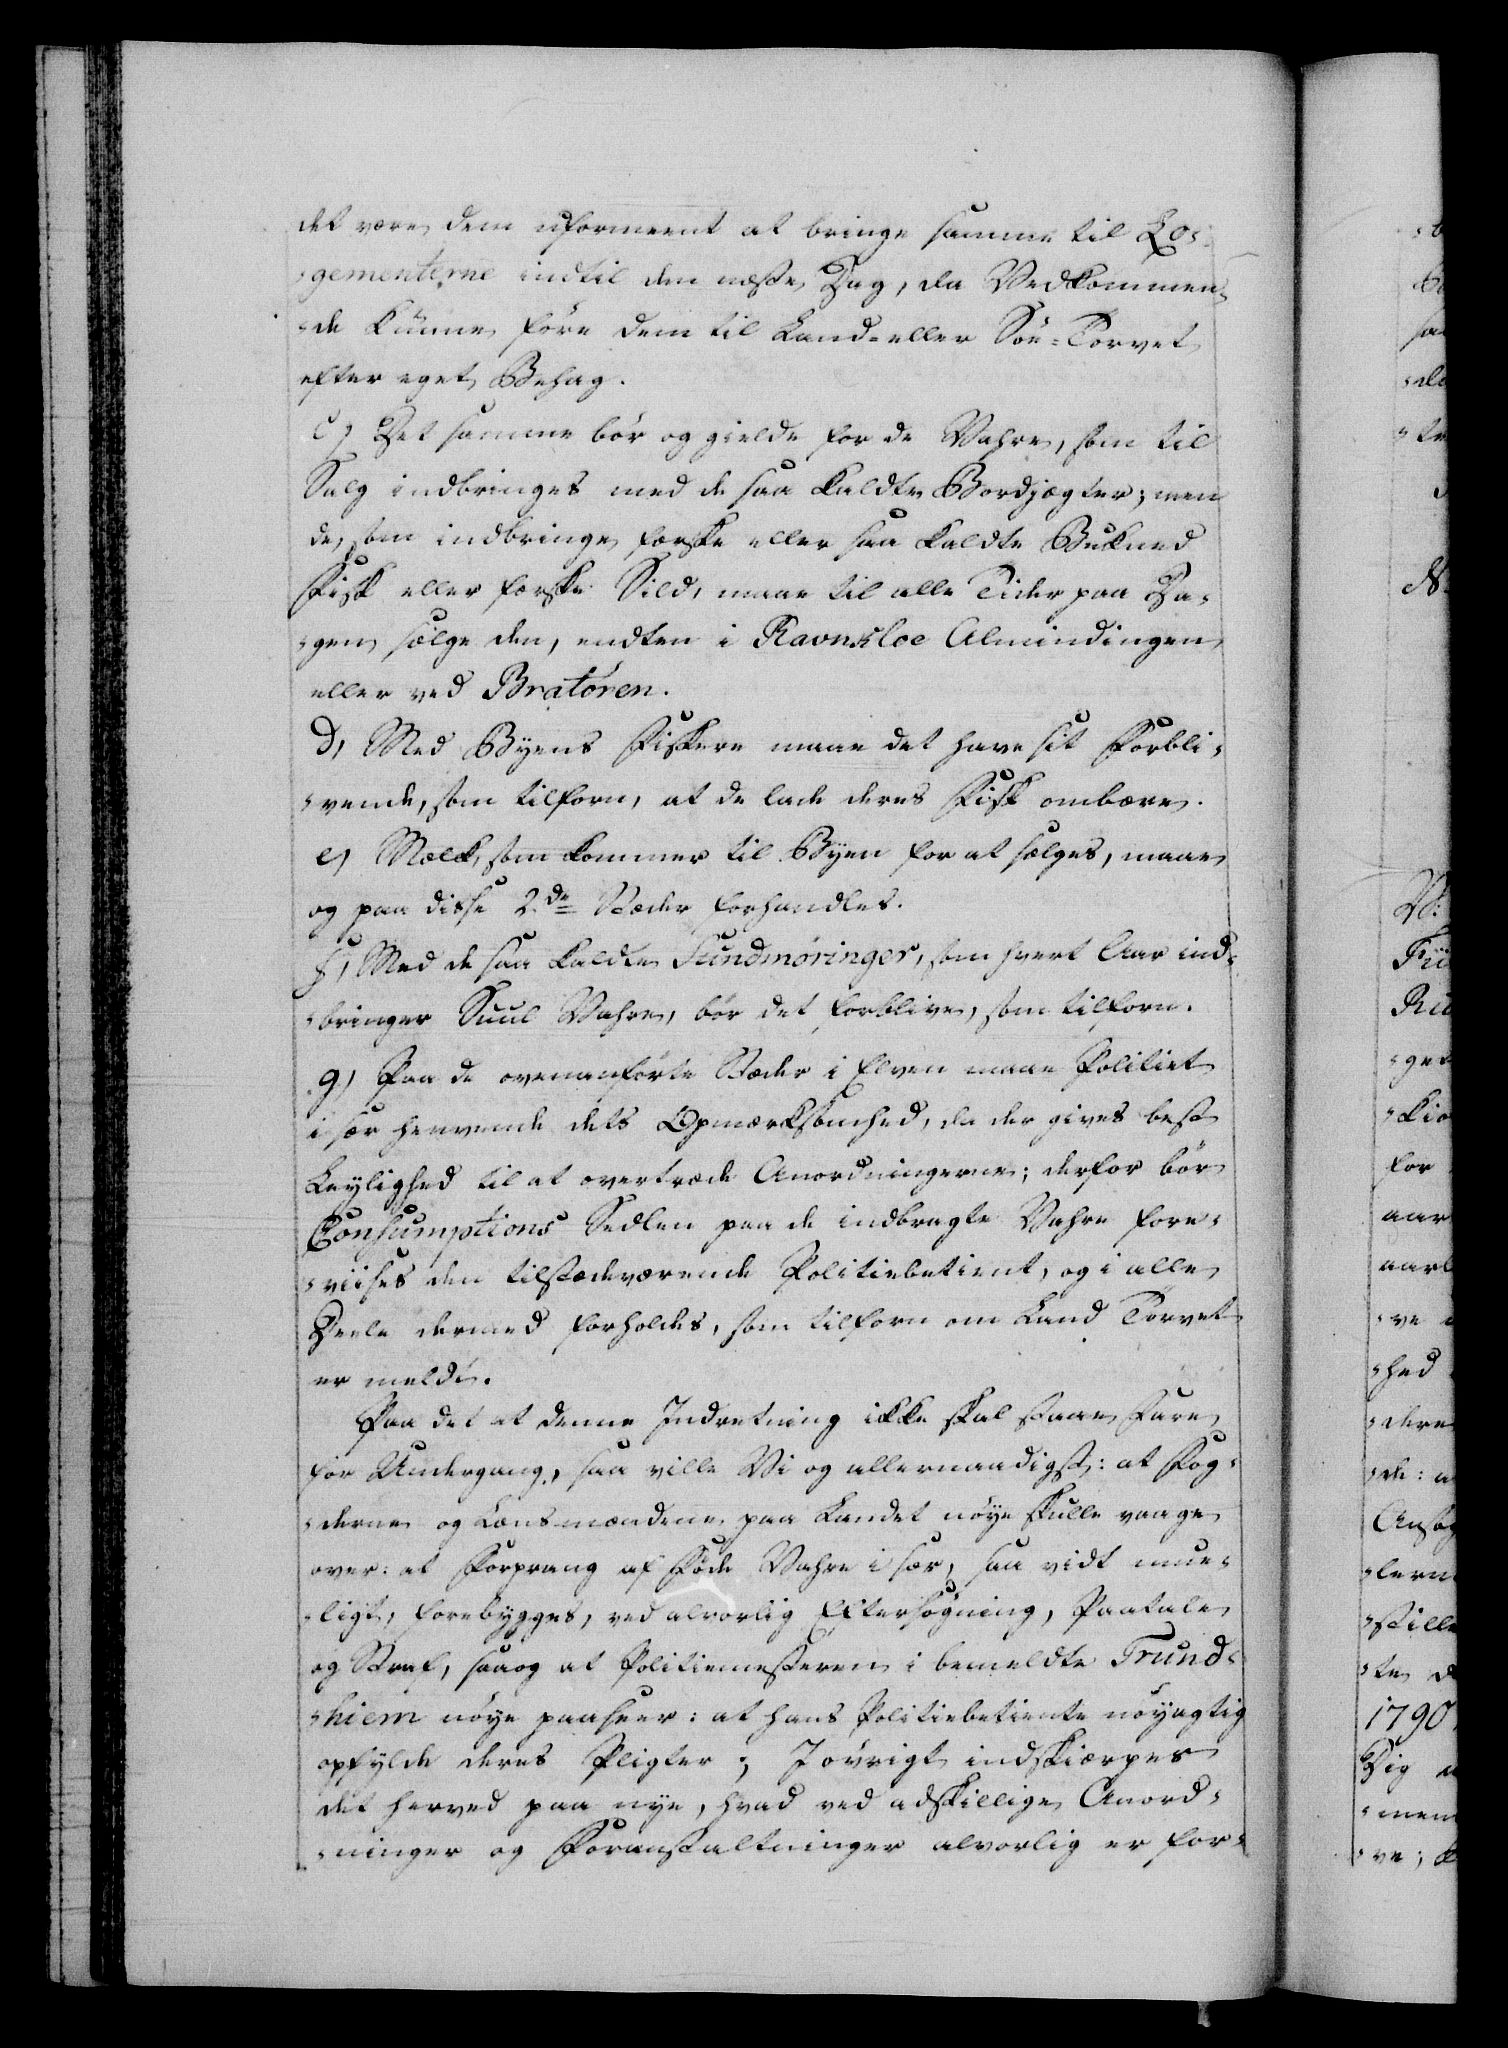 det være dem uformeent at bringe samme til Lo-
-gementerne indtil den næste Dag, da Vedkommen-
-de kunne före dem til Land- eller Söe-Torvet
efter eget Behag.
c) Det samme bör og gielde for de Vahre, som til
Salg indbringes med de saa kaldte Bordjægter; men
de, som indbringe ferske eller saa kaldte Bukned
Fisk eller ferske Sild, maae til alle Tider paa Da-
-gen sælge den, endten i Ravnkloe Almindingen
eller ved Bratören.
d, Med Byens Fiskere maae det have sit Forbli-
-vende, som tilforn, at de lade deres Fisk ombære.
e) Melk, som kommer til Byen for at sælges, maae
og paa disse 2de Stæder forhandles.
f, Med de saa kaldte Sundmöringer, som hvert Aar ind-
-bringer Suul Vahre, bör det forblive, som tilforn.
g) Paa de ovenanförte Stæder i Elven maae Politiet
i sær henvende dets Opmærksomhed, da der gives best
Leylighed til at overtræde Anordningerne; derfor bör
Consumptions Sedlen paa de indbragte Vahre fore-
-viises den tilstædeværende Politiebetient, og i alle
Deele dermed forholdes, som tilforn om Land Torvet
er meldt.
Paa det at denne Indretning ikke skal staae Fare
for Undergang, saa ville Vi og allernaadigst: at Fog-
-derne og Lensmændene paa Landet nöye skulle vaage
over: at Forprang af Föde Vahre i sær, saa vidt mue-
-ligt, forebygges, ved alvorlig Eftersögning, Paatale
og Straf, saa og at Politiemesteren i bemeldte Trund-
-hiem nöye paaseer: at hans Politiebetiente nöyagtig
opfylde deres Pligter; I övrigt indskiærpes
det herved paa nye, hvad ved adskillige Anord-
-ninger og Foranstaltninger alvorlig er for-
1790